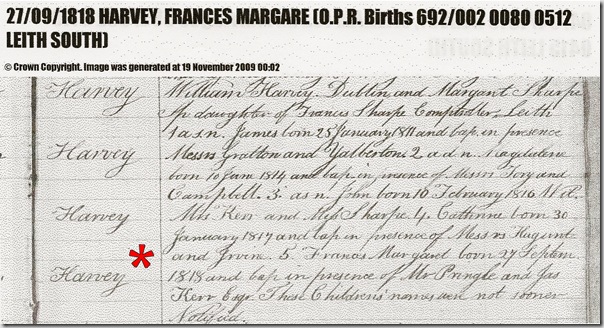 27/09/1818 HARVEY, FRANCES MARGARE (O.P.R. Births 692/002 0080 0512
LEITH SOUTH)
© Crown Copyright. Image was generated at 19 November 2009 00:02
Harvey William Harvey. Dublin and Margant Sharpe
Sp. daughter of Francis Sharpe Comptroller, Leith
1 a s n. James born 25 January 1811 and bap. in presence
Harvey Messrs Gratton and Yalberton. 2 a d n. Magdalene
born 10 June 1814 and bap. in presence of Messrs Tory and
Campbell. 3. a s n. John born 16 February 1816
Harvey Mrs Kerr and Miss Sharpe 4. Cathrine born 30
January 1817 and bap in presence of Messrs Hugunt
and Irvine 5. Francis Margaret born 27 Septem
Harvey * 1818 and bap in presence of Mr Pringle and Jas
Kerr Esqr. These Children's names were not sooner
Notified.